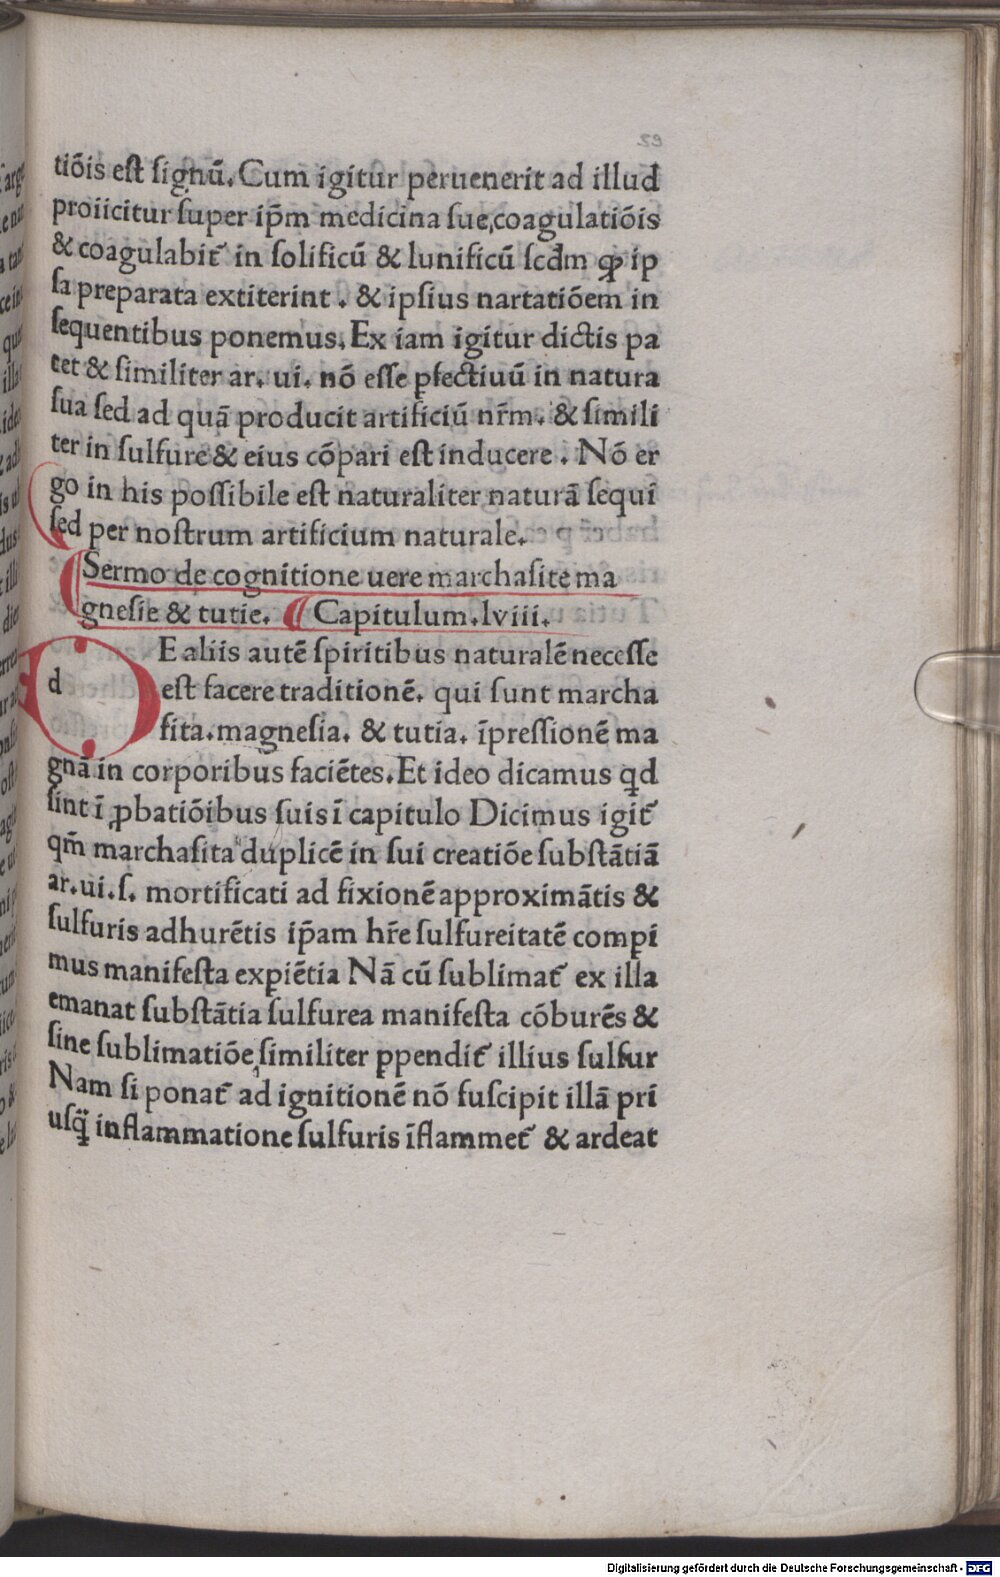 tiōis est signū. Cum igitur peruenerit ad illud
proiicitur super ip̄m medicina sue coagulatiōis
& coagulabit᷑ in solificū & lunificū scd̄m ꝙ ip
sa preparata extiterint . & ipsius nartatiōem in
sequentibus ponemus. Ex iam igitur dictis pa
tet & similiter ar. ui. nō esse ꝑfectiuū in natura
sua sed ad quā producit artificiū nr̄m. & simili
ter in sulfure & eius cōpari est inducere . Nō er
go in his possibile est naturaliter naturā sequi
sed per nostrum artificium naturale.
Sermo de cognitione uere marchasite ma
gnesie & tutie. Capitulum. lviii.
d E aliis autē spiritibus naturalē necesse
est facere traditionē. qui sunt marcha
sita. magnesia. & tutia. īpressionē ma
gnā in corporibus faciētes. Et ideo dicamus qd
sint ī ꝓbatiōibus suis ī capitulo Dicimus igit᷑
qm̄ marchasita duplicē in sui creatiōe substātiā
ar. ui. s. mortificati ad fixionē approximātis &
sulfuris adhurētis ip̄am hr̄e sulfureitatē compi
mus manifesta expiētia Nā cū sublimat᷑ ex illa
emanat substātia sulfurea manifesta cōburēs &
sine sublimatiōe similiter ꝑpendit᷑ illius sulfur
Nam si ponat᷑ ad ignitionē nō suscipit illā pri
usq̄ȝ inflammatione sulfuris īflammet᷑ & ardeat
Digitalisierung gefördert durch die Deutsche Forschungsgemeinschaft - DFG